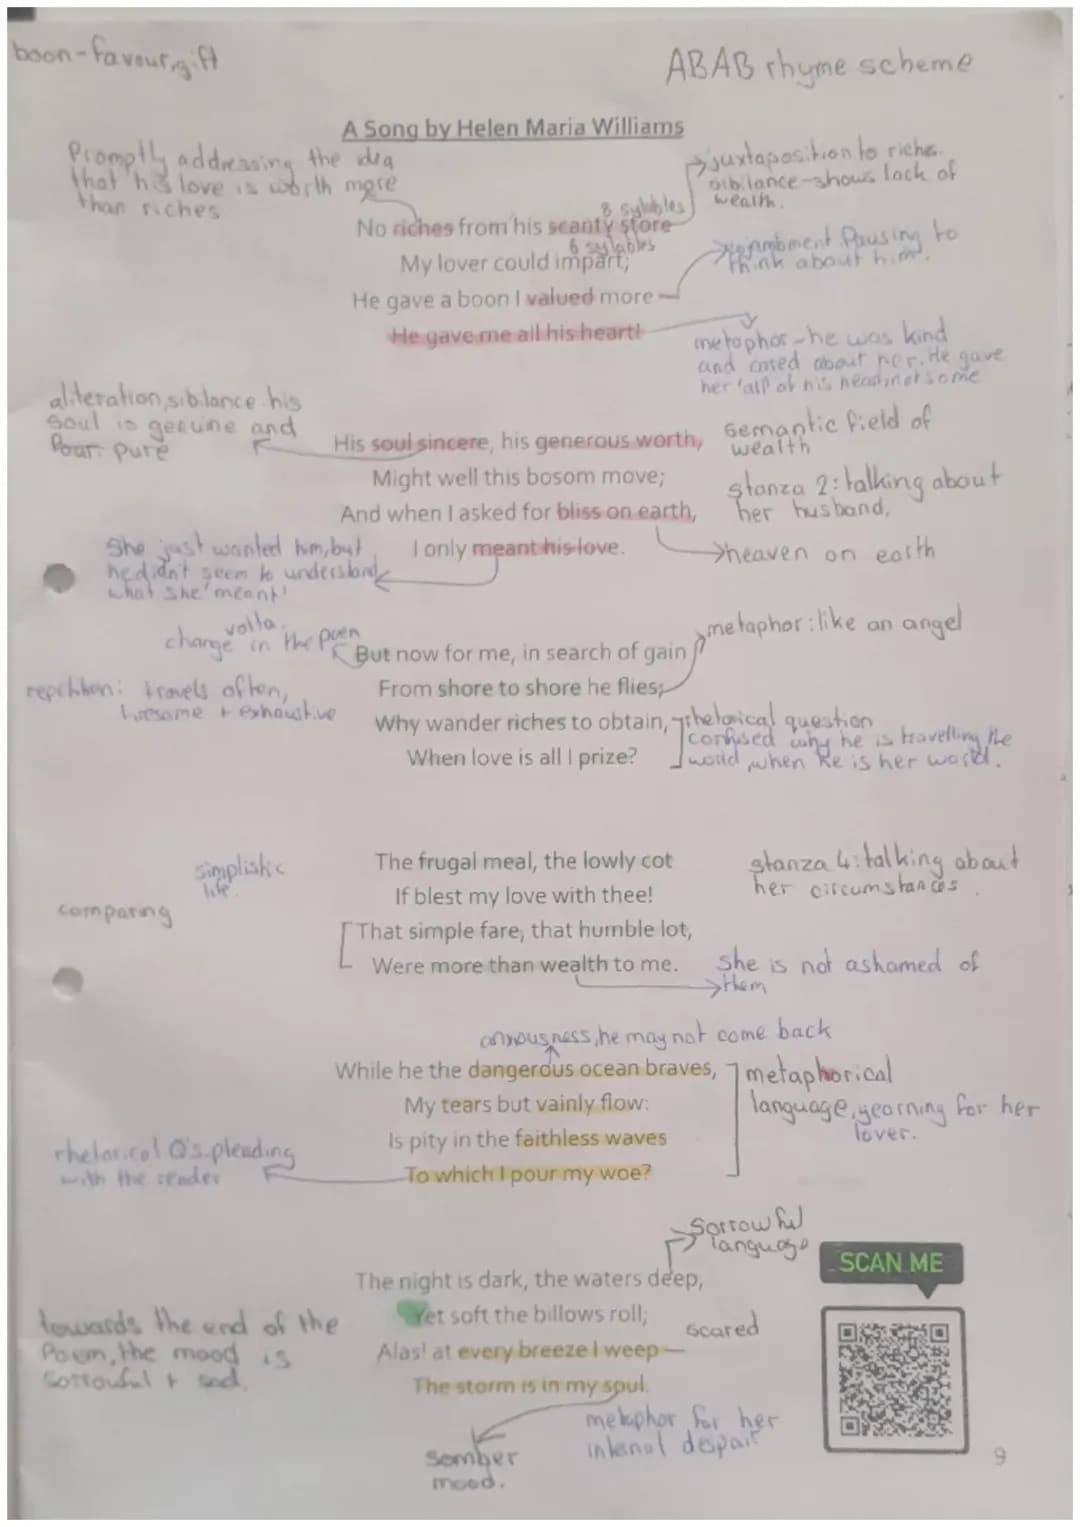 boon-favour,gift
ABAB rhyme scheme
A Song by Helen Maria Williams
Promptly addressing the idea
that his love is worth more
than riches
juxtaposition to riches.
sibilance-shows lack of
wealth.
8 sylables
No riches from his scanty store
6 sylables
My lover could impart;
enjambment. Pausing to
think about him.
He gave a boon I valued more –
He gave me all his heart!
metaphor-he was kind
and cared about her. He gave
her 'all' of his heart, not some
aliteration, sibilance his
soul is genuine and
pure
His soul sincere, his generous worth,
semantic field of
wealth
Might well this bosom move;
stanza 2: talking about
her husband.
And when I asked for bliss on earth,
I only meant his love.
heaven on earth
She just wanted him, but
he didn't seem to understand
what she 'meant'
volta.
change in the poem
metaphor: like an angel
But now for me, in search of gain
From shore to shore he flies;
travels often,
tiresome + exhaustive
Why wander riches to obtain,
When love is all I prize?
rhetorical question
confused why he is travelling the
world, when he is her world.
simplistic
life.
The frugal meal, the lowly cot
If blest my love with thee!
stanza 4: talking about
her circumstances.
comparing
That simple fare, that humble lot,
Were more than wealth to me.
She is not ashamed of
them
anxousness, he may not come back
While he the dangerous ocean braves,
My tears but vainly flow:
Is pity in the faithless waves
To which I pour my woe?
metaphorical
language, yearning for her
lover.
rhetorical Q's. pleading
with the reader
Sorrowful
language
SCAN ME
The night is dark, the waters deep,
Yet soft the billows roll;
Alas! at every breeze I weep —
The storm is in my soul.
scared
towards the end of the
Poem, the mood is
sorrowful + sad.
metaphor for her
internal despair
Somber
mood.
9